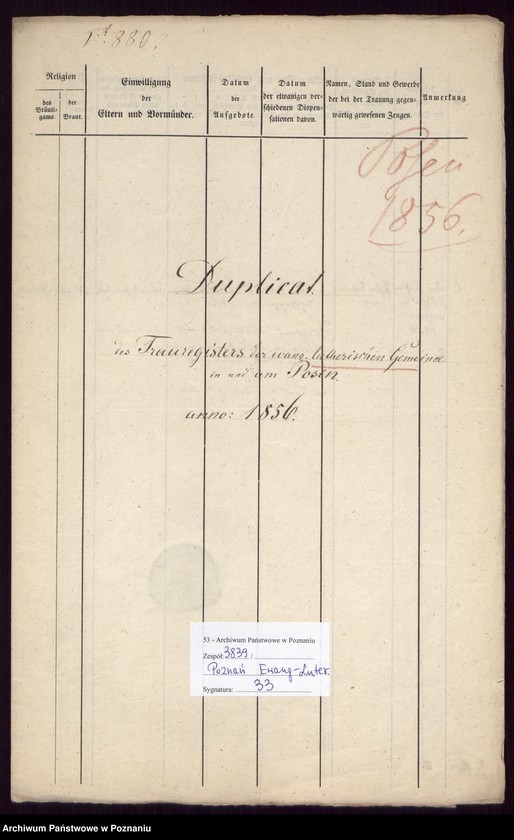 Religion
des
Bräuti-
gams.
der
Braut.
Einwilligung
der
Eltern und Vormünder.
Datum
der
Aufgebote.
Datum
der etwanigen ver-
schiedenen Dispen-
sationen davon.
Namen, Stand und Gewerbe
der bei der Trauung gegen-
wärtig gewesenen Zeugen.
Anmerkung
880.
Posen
1856.
Duplicat
des Trauregisters der evang. lutherischen Gemeinde
in und um Posen.
anno: 1856.
53 - Archiwum Państwowe w Poznaniu
Zespół: 3839 /
Poznań Ewang-Luter.
Sygnatura: 33
Archiwum Państwowe w Poznaniu